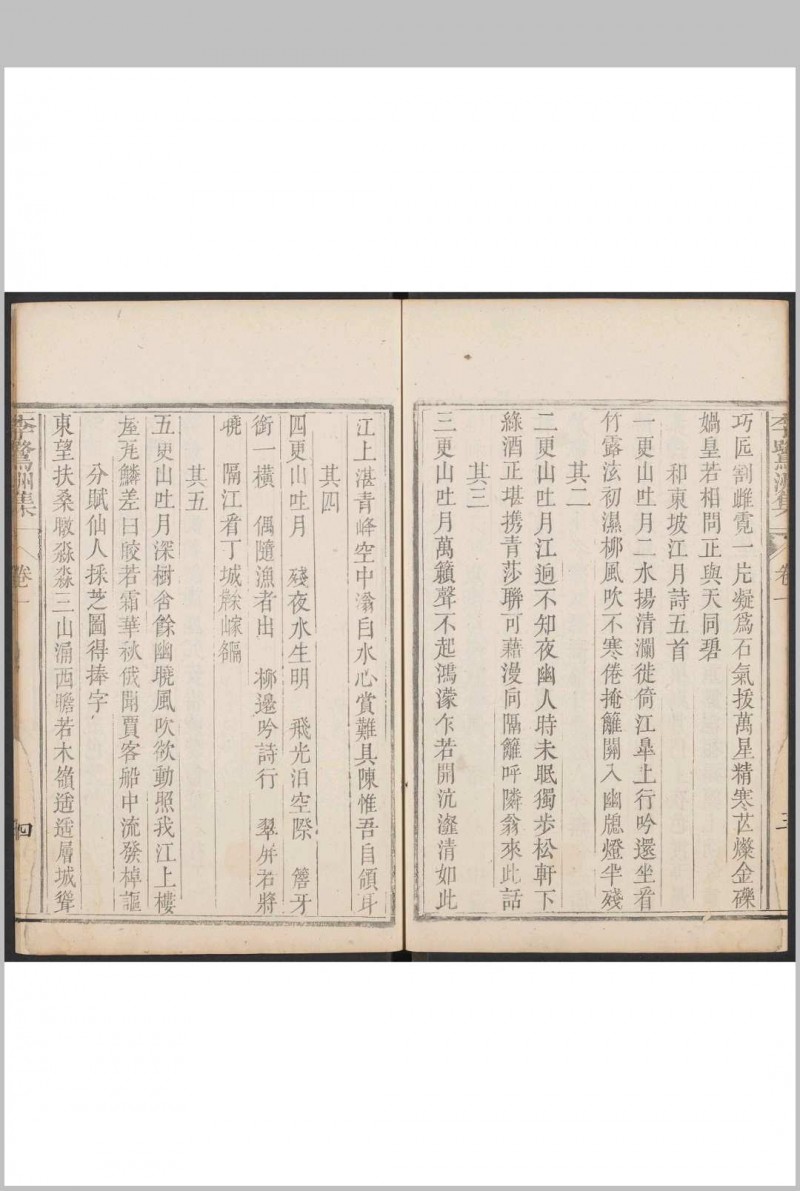 李鷺洲集 卷一 三
巧匠割雌霓一片凝爲石氣援萬星精寒芒燦金礫
媧皇若相問正與天同碧
和東坡江月詩五首
一更山吐月二水揚清瀾徙倚江皐上行吟還坐看
竹露泫初濕柳風吹不寒倦掩籬關入幽牕燈半殘
其二
二更山吐月江逈不知夜幽人時未眠獨步松軒下
綠酒正堪携青莎聊可藉漫向隔籬呼隣翁來此話
其三
三更山吐月萬籟聲不起鴻濛乍若開沆瀣清如此
江上湛青峰空中滃白水心賞難具陳惟吾自領耳
其四
四更山吐月 殘夜水生明 飛光泊空際 簷牙
銜一橫 偶隨漁者出 柳邊吟詩行 翠屏若將
曉 隔江看丁城
其五
五更山吐月深樹舍餘幽曉風吹欲動照我江上樓
鱗差白皎若霜華秋俄聞賈客船中流發棹謳
分賦仙人採芝圖得捧字
東望扶桑暾淼淼三山涌西瞻若木嶺逓遞層城聳
李鷺洲集 卷一 四